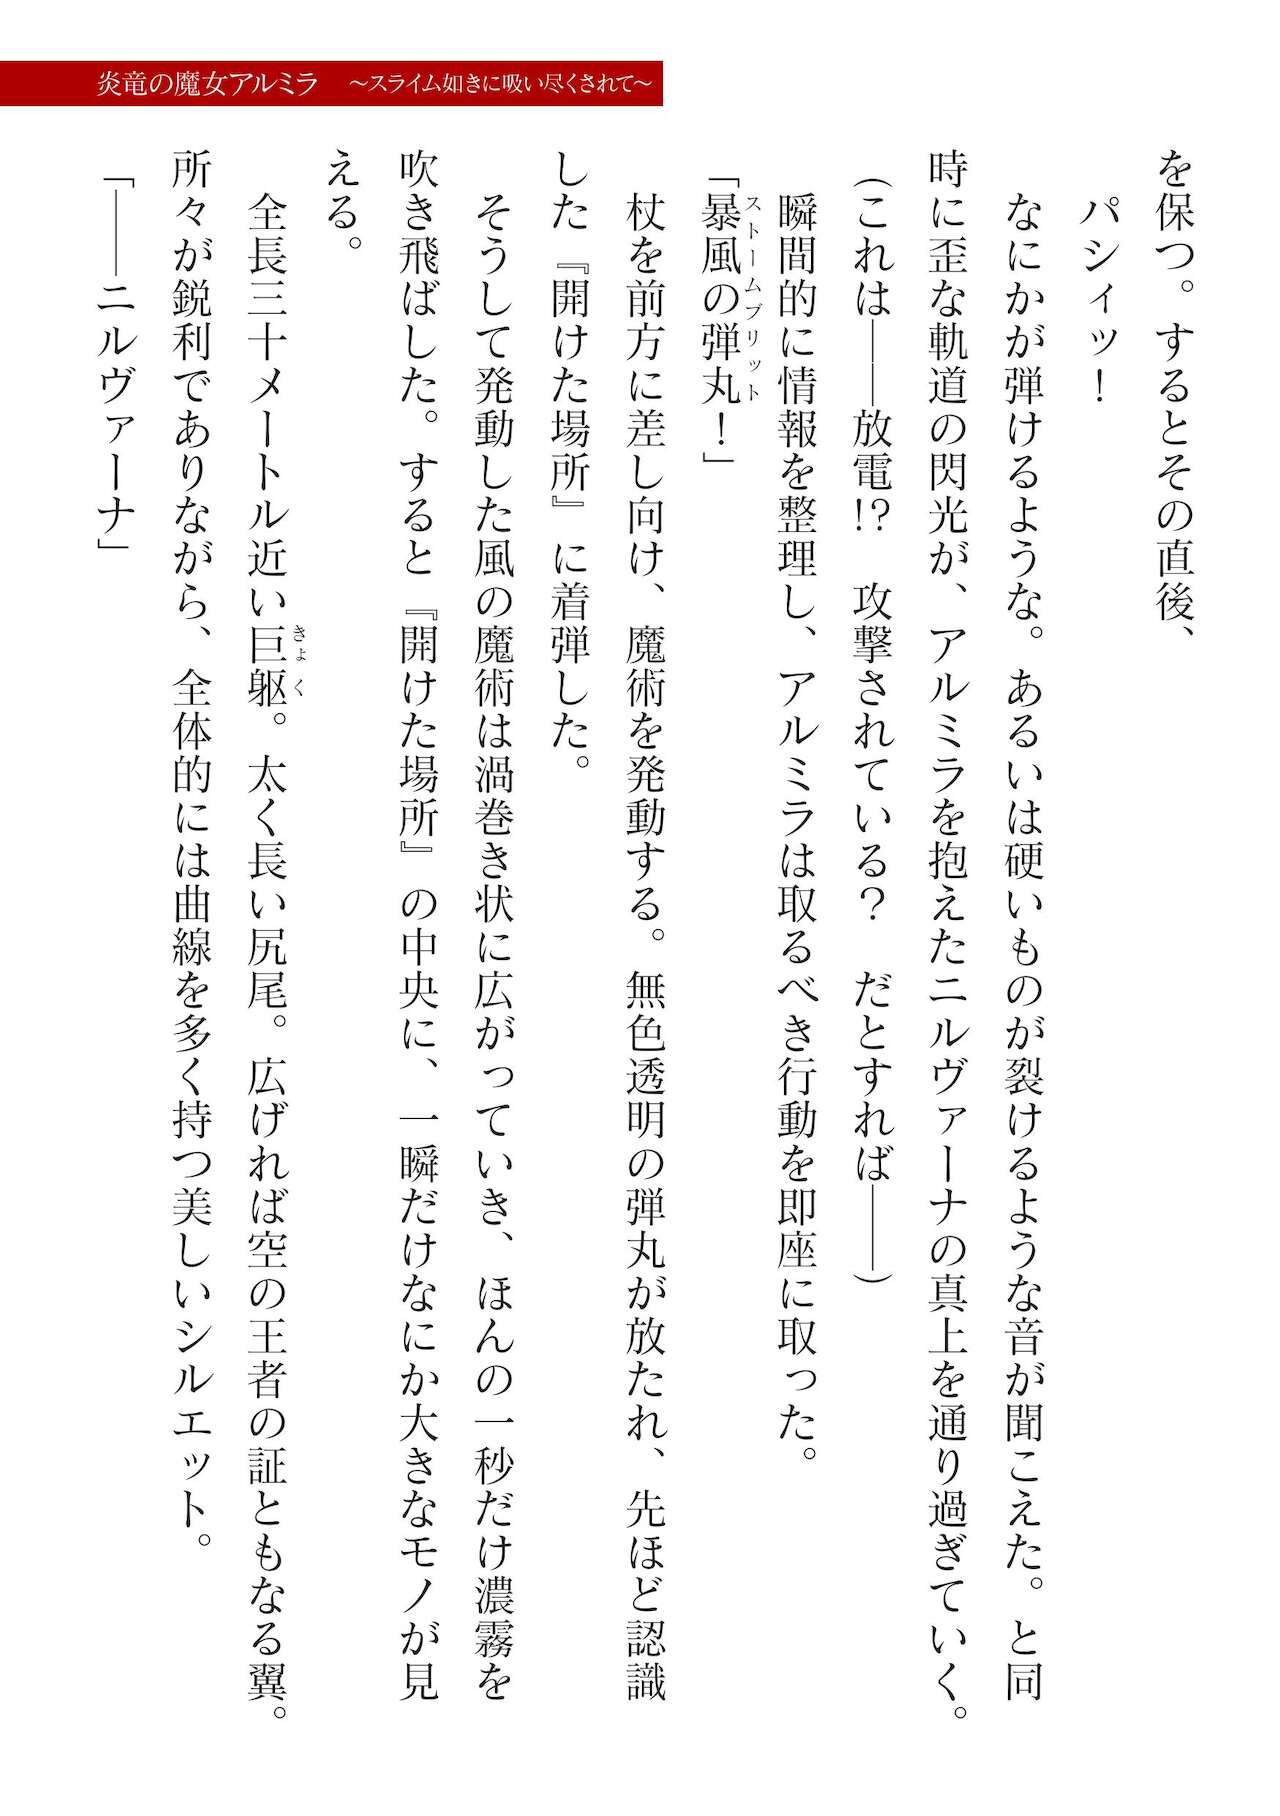 炎竜の魔女アルミラ　～スライム如きに吸い尽くされて～
を保つ。するとその直後、
　パシィッ！
　なにかが弾けるような。あるいは硬いものが裂けるような音が聞こえた。と同
時に歪な軌道の閃光が、アルミラを抱えたニルヴァーナの真上を通り過ぎていく。
（これは――放電!?　攻撃されている？　だとすれば――）
　瞬間的に情報を整理し、アルミラは取るべき行動を即座に取った。
ストームブリット
「暴風の弾丸！」
　杖を前方に差し向け、魔術を発動する。無色透明の弾丸が放たれ、先ほど認識
した『開けた場所』に着弾した。
　そうして発動した風の魔術は渦巻き状に広がっていき、ほんの一秒だけ濃霧を
吹き飛ばした。すると『開けた場所』の中央に、一瞬だけなにか大きなモノが見
える。
きょく
　全長三十メートル近い巨躯。太く長い尻尾。広げれば空の王者の証ともなる翼。
所々が鋭利でありながら、全体的には曲線を多く持つ美しいシルエット。
「――ニルヴァーナ」